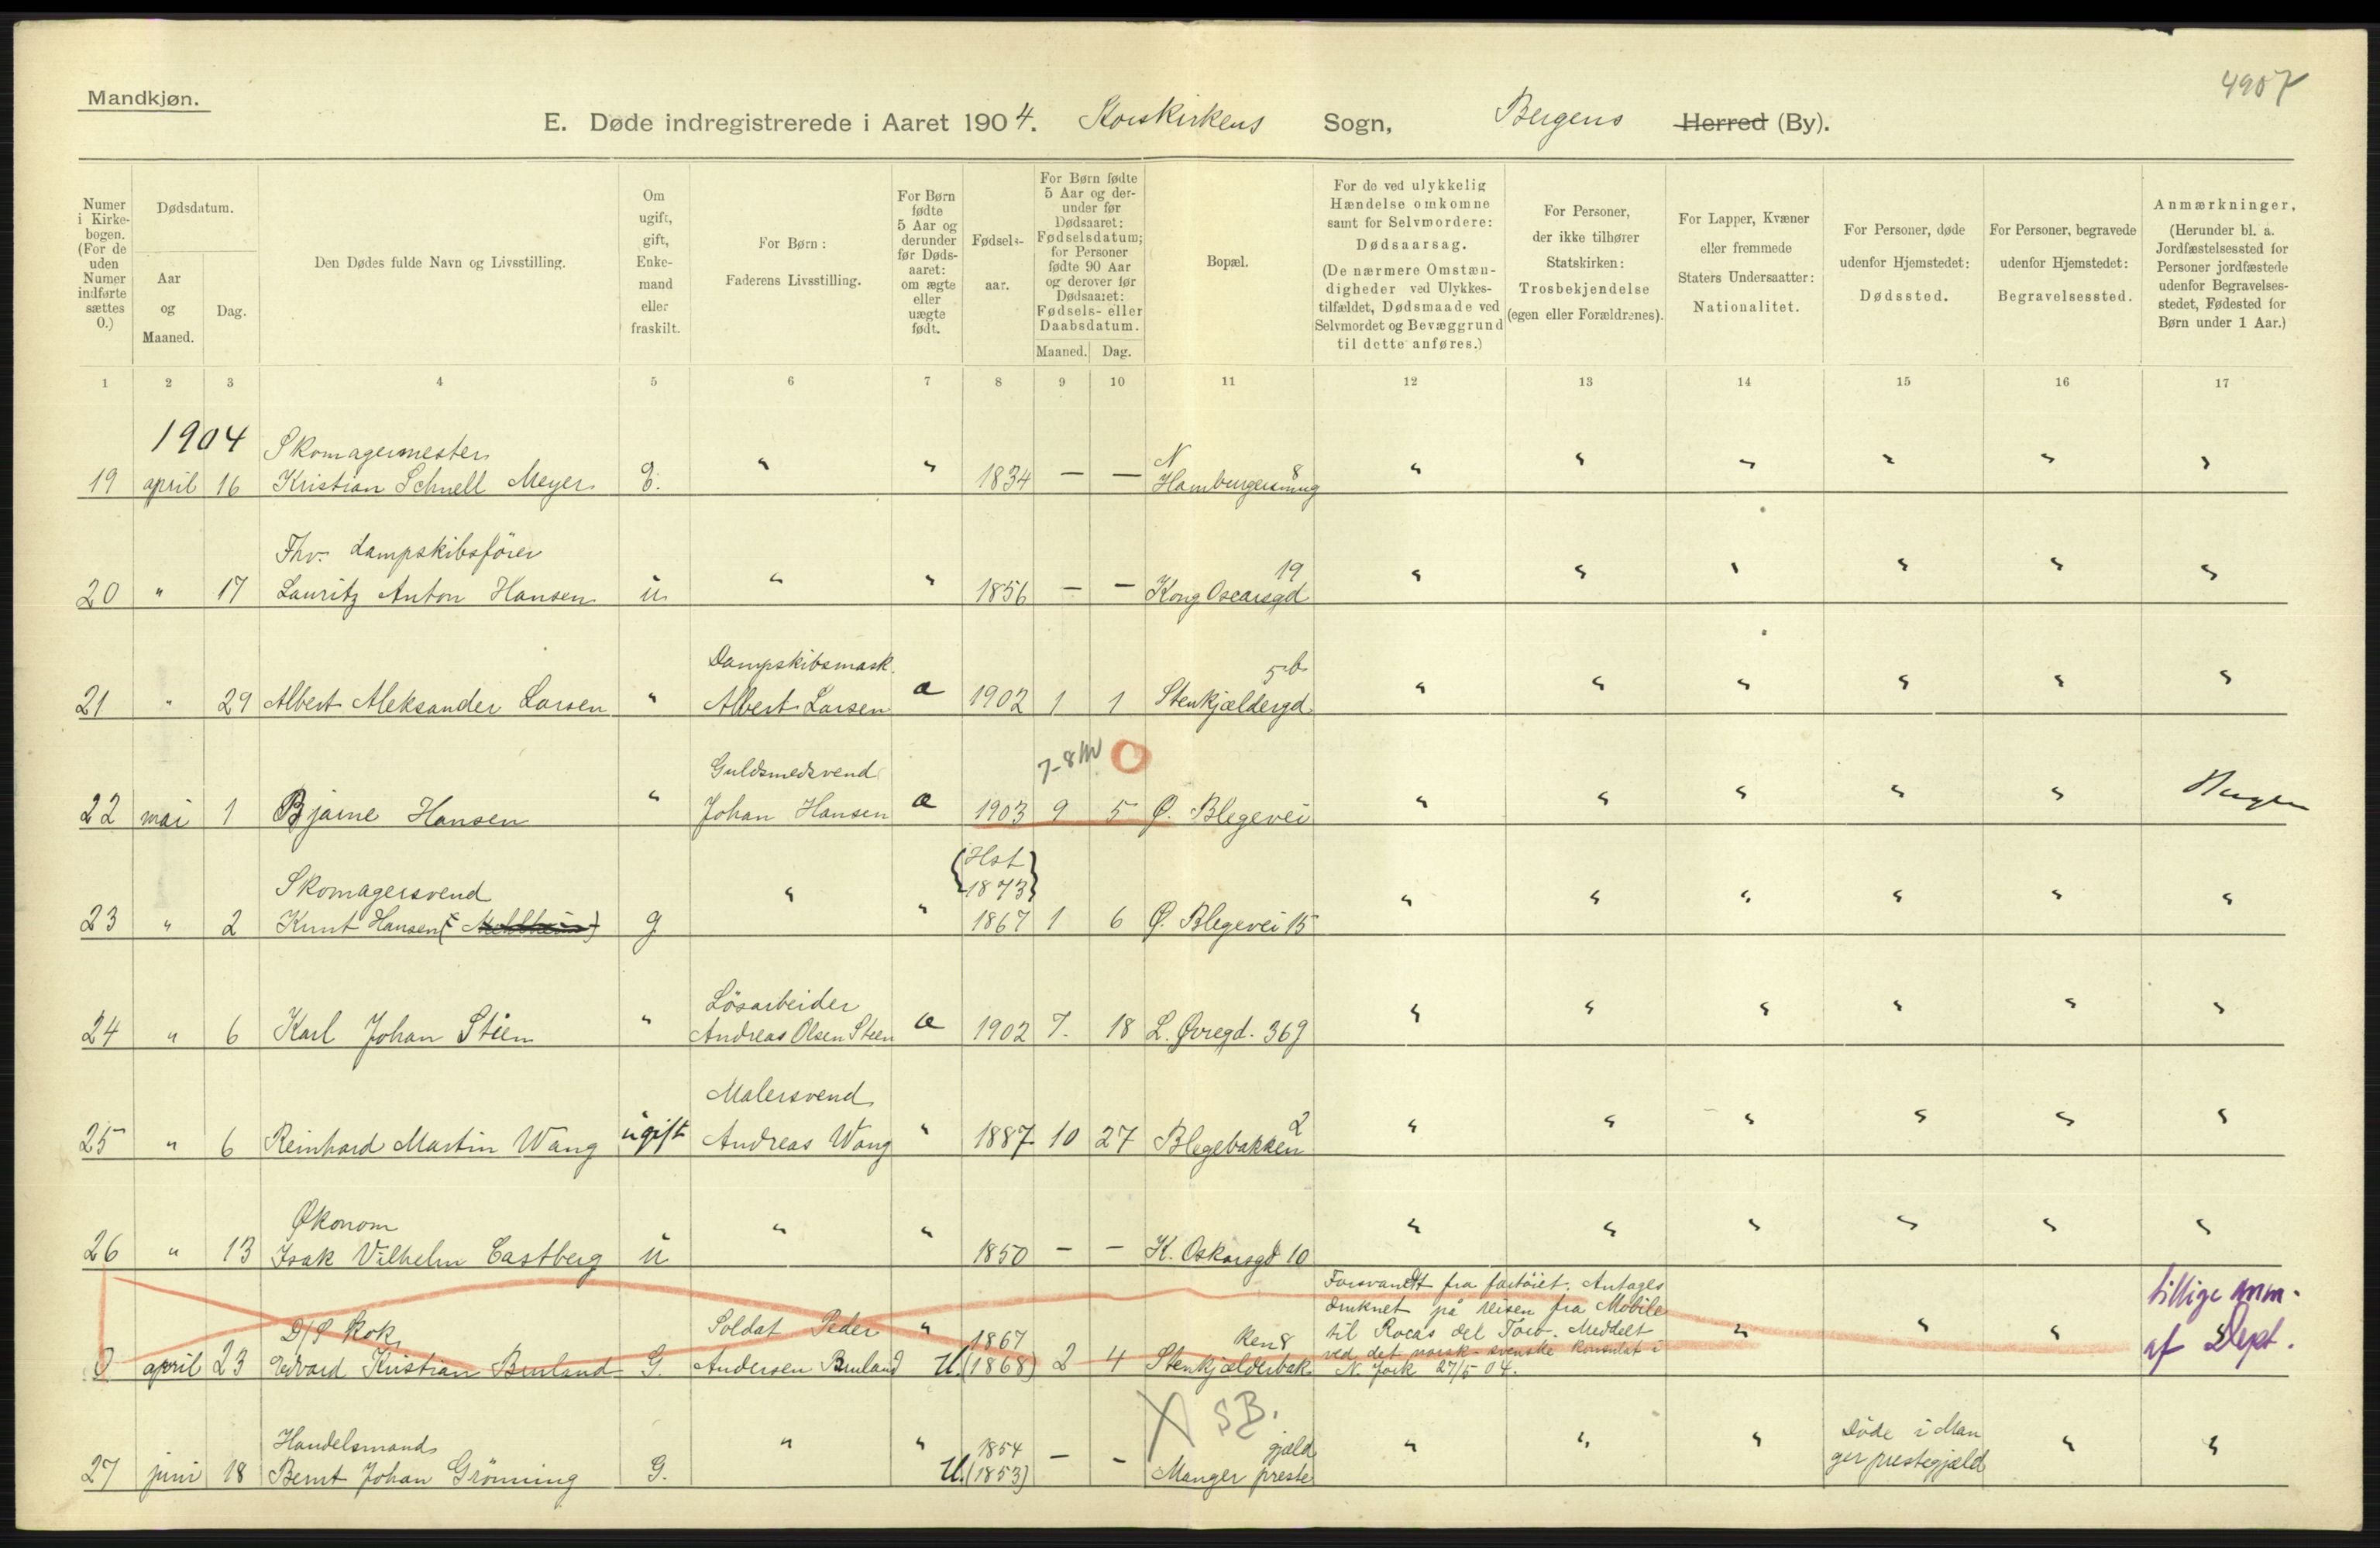 4907
Mandkjøn.
E. Døde indregistrerede i Aaret 1904. Korskirkens Sogn, Bergens Herred (By).
Numer i Kirkebogen. (For de uden Numer indførte sættes 0.)
Dødsdatum.
Aar og Maaned.
Dag.
Den Dødes fulde Navn og Livsstilling.
Om ugift, gift, Enkemand eller fraskilt.
For Børn: Faderens Livsstilling.
For Børn fødte 5 Aar og derunder før Dødsaaret: om ægte eller uægte født.
Fødselsaar.
For Børn fødte 5 Aar og derunder før Dødsaaret: Fødselsdatum; for Personer fødte 90 Aar og derover før Dødsaaret: Fødsels- eller Daabsdatum.
Maaned. Dag.
Bopæl.
For de ved ulykkelig Hændelse omkomne samt for Selvmordere: Dødsaarsag. (De nærmere Omstændigheder ved Ulykkestilfældet, Dødsmaade ved Selvmordet og Bevæggrund til dette anføres.)
For Personer, der ikke tilhører Statskirken: Trosbekjendelse (egen eller Forældrenes).
For Lapper, Kvæner eller fremmede Staters Undersaatter: Nationalitet.
For Personer, døde udenfor Hjemstedet: Dødssted.
For Personer, begravede udenfor Hjemstedet: Begravelsessted.
Anmærkninger, (Herunder bl. a. Jordfæstelsessted for Personer jordfæstede udenfor Begravelsesstedet, Fødested for Børn under 1 Aar.)
1 2 3 4 5 6 7 8 9 10 11 12 13 14 15 16 17
1904 Skomagermester N
19 april 16 Kristian Schnell Meyer E. " " 1834 — — Hamburgersmug 8 " " " " " "
Fhv. dampskibsfører 19
20 " 17 Lauritz Anton Hansen u " " 1856 — — Kong Oscarsgd " " " " " "
Dampskibsmask. 5b
21 " 29 Albert Aleksander Larsen " Albert Larsen æ 1902 1 1 Stenkjældergd. " " " " " "
Guldsmedsvend 7-8 M O
22 mai 1 Bjarne Hansen " Johan Hansen æ 1903 9 5 Ø. Blegevei " " " " " Bergen
Skomagersvend (Hst 1873)
23 " 2 Knut Hansen g " " 1867 1 6 Ø. Blegevei 15 " " " " " "
Løsarbeider
24 " 6 Karl Johan Steen " Andreas Olsen Steen æ 1902 7. 18 L. Øvregd. 369 " " " " " "
Malersvend 2
25 " 6 Reinhard Martin Wang ugift Andreas Wang " 1887 10 27 Blegebakken " " " " " "
Økonom
26 " 13 Isak Vilhelm Castberg u " " 1850 — — K. Oskarsgd 10 " " " " " "
Forsvandt fra fartöiet. Antages
druknet på reisen fra Mobile tillige anm.
D/S Kok Soldat Peder " 1867 ken 8 til Rocas del Toro. Meddelt " " " af Dept.
ved det norsk-svenske konsulat i
0 april 23 Edvard Kristian Bruland G. Andersen Bruland U. (1868) 2 4 Stenkjælderbak N. York 27/5 04.
X SB.
Handelsmand " " 1854 gjæld " " " Døde i Man " "
27 juni 18 Bernt Johan Grönning G. U. (1853) — — Manger preste ger prestegjæld